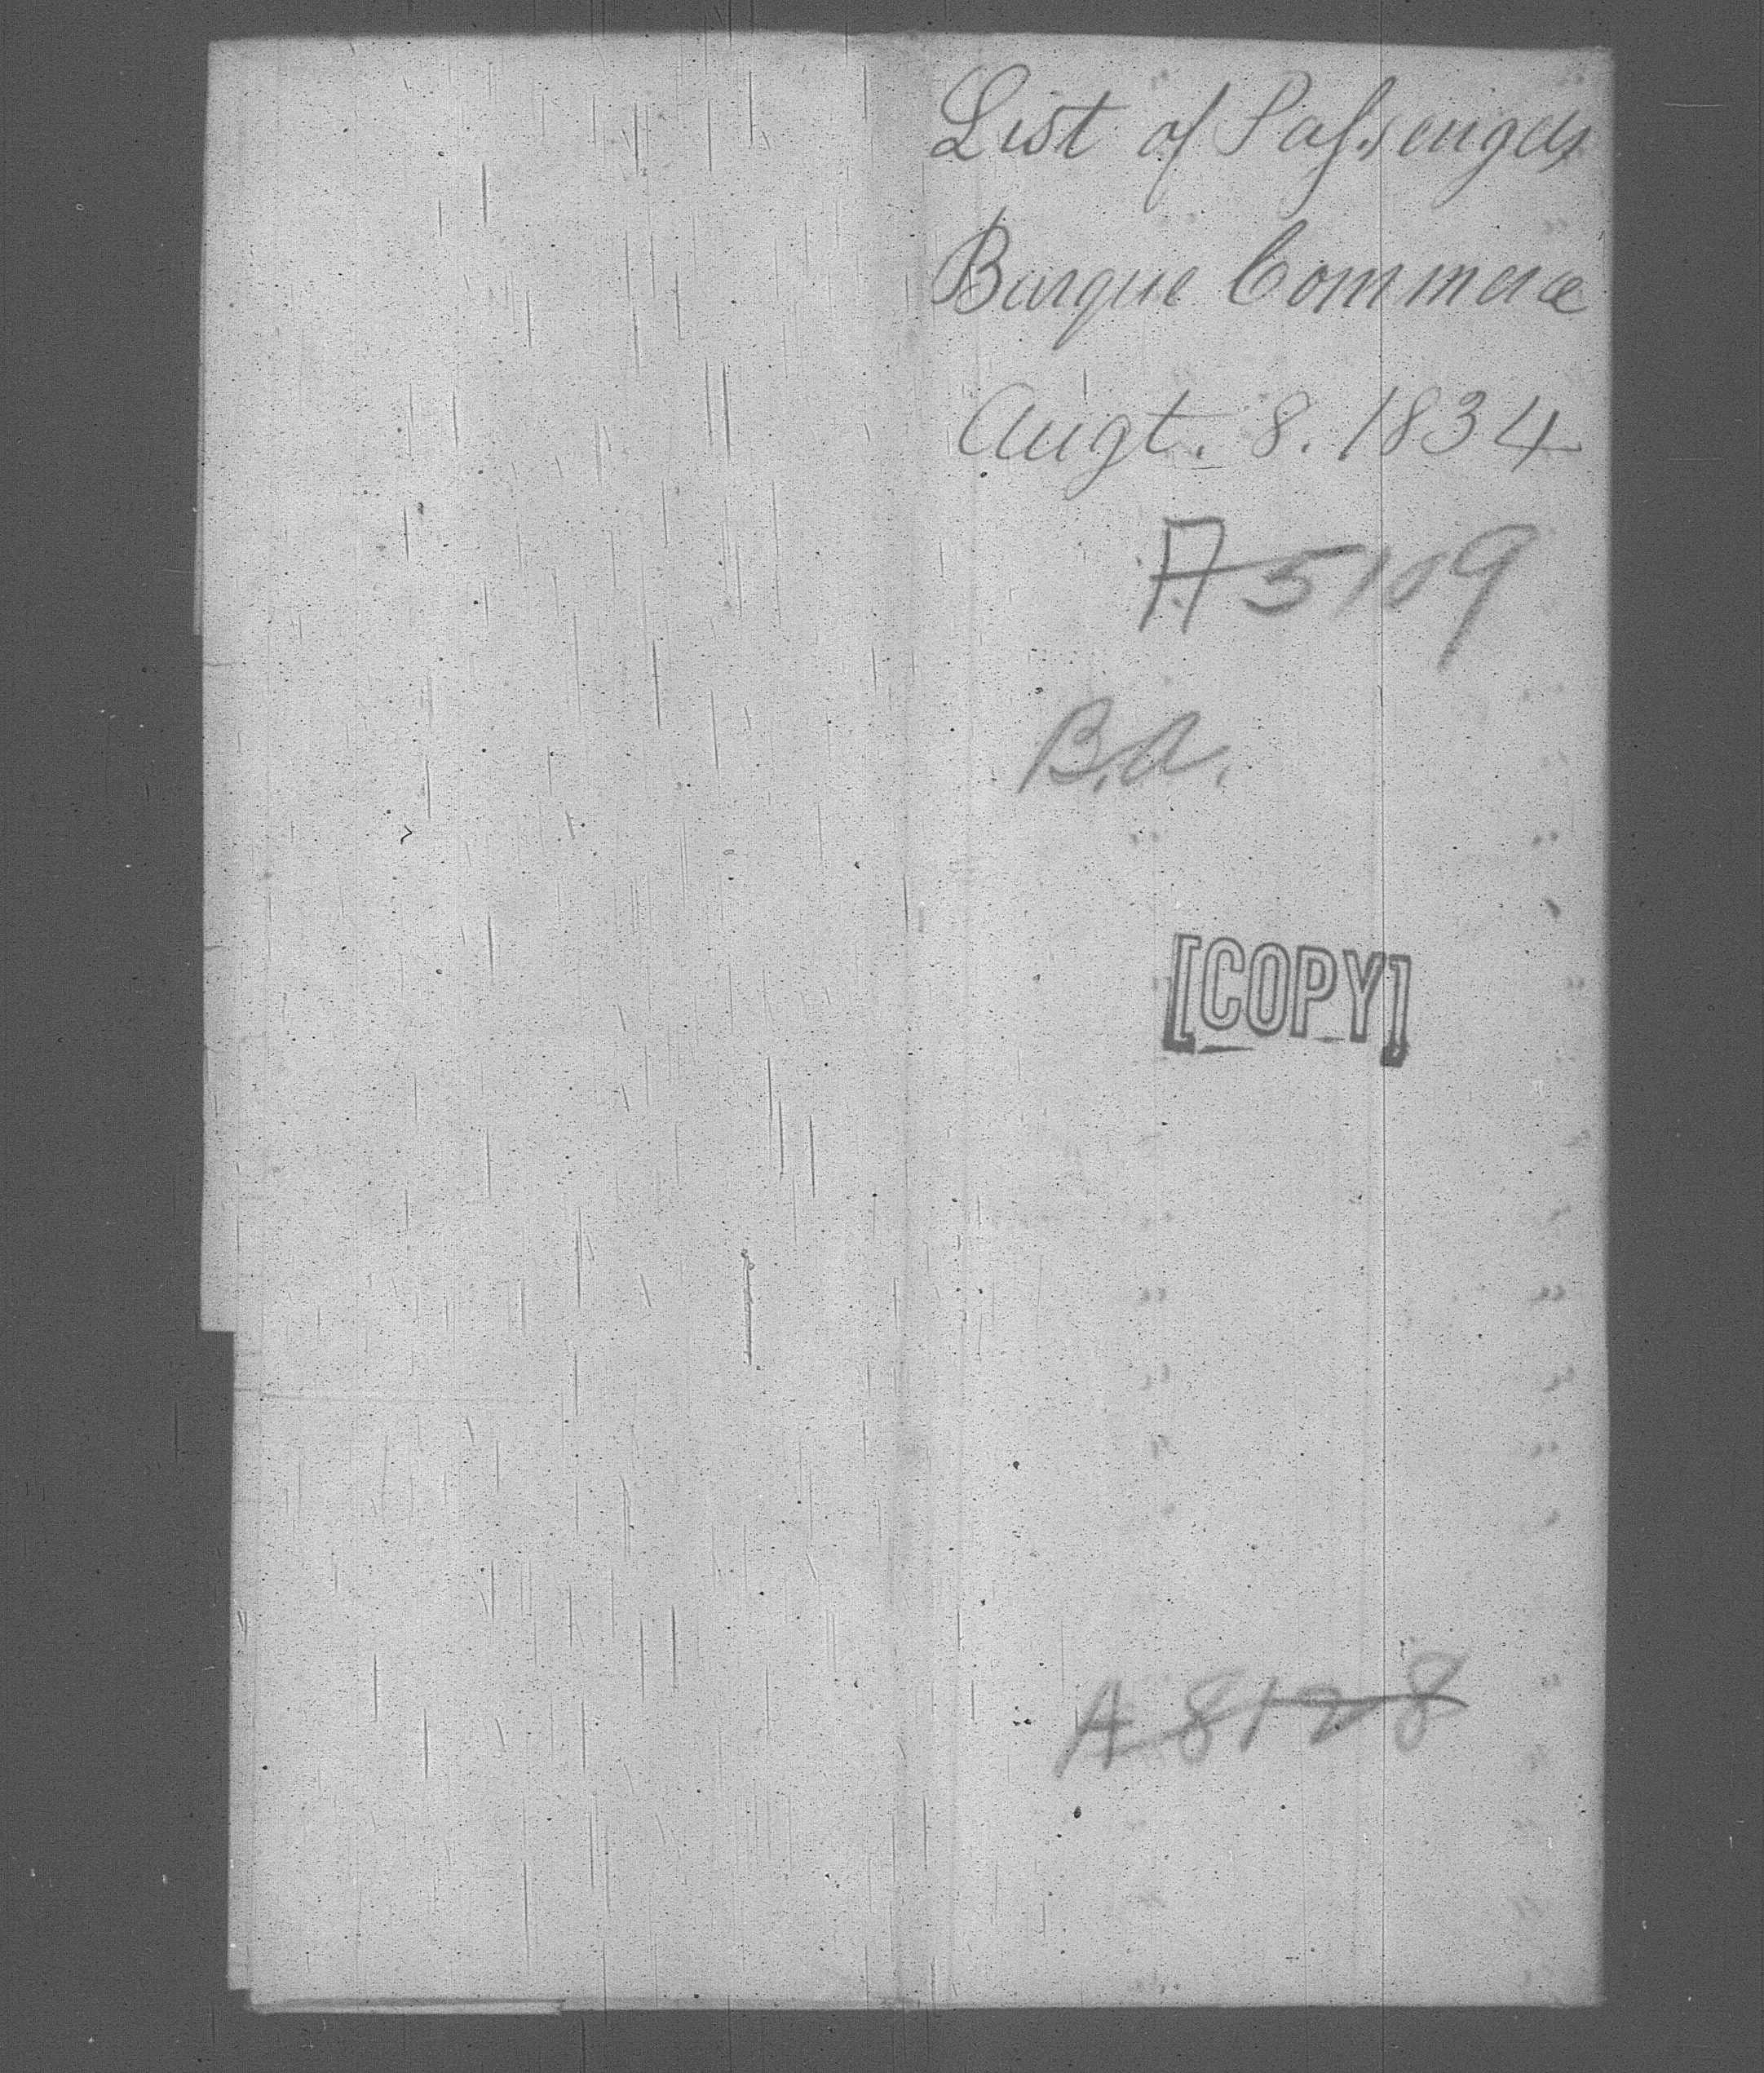 List of Passengers
Barque Commerce
Augt. 8. 1834
A5109
B.A.
[COPY]
A 8128